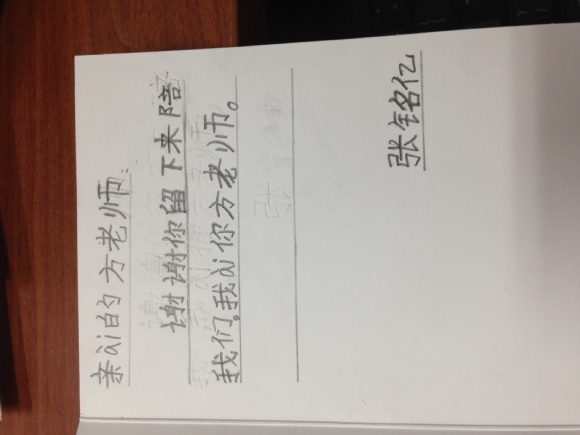 亲ài的方老师：
谢谢你留下来陪
我们。我ài你方老师。
张铭亿